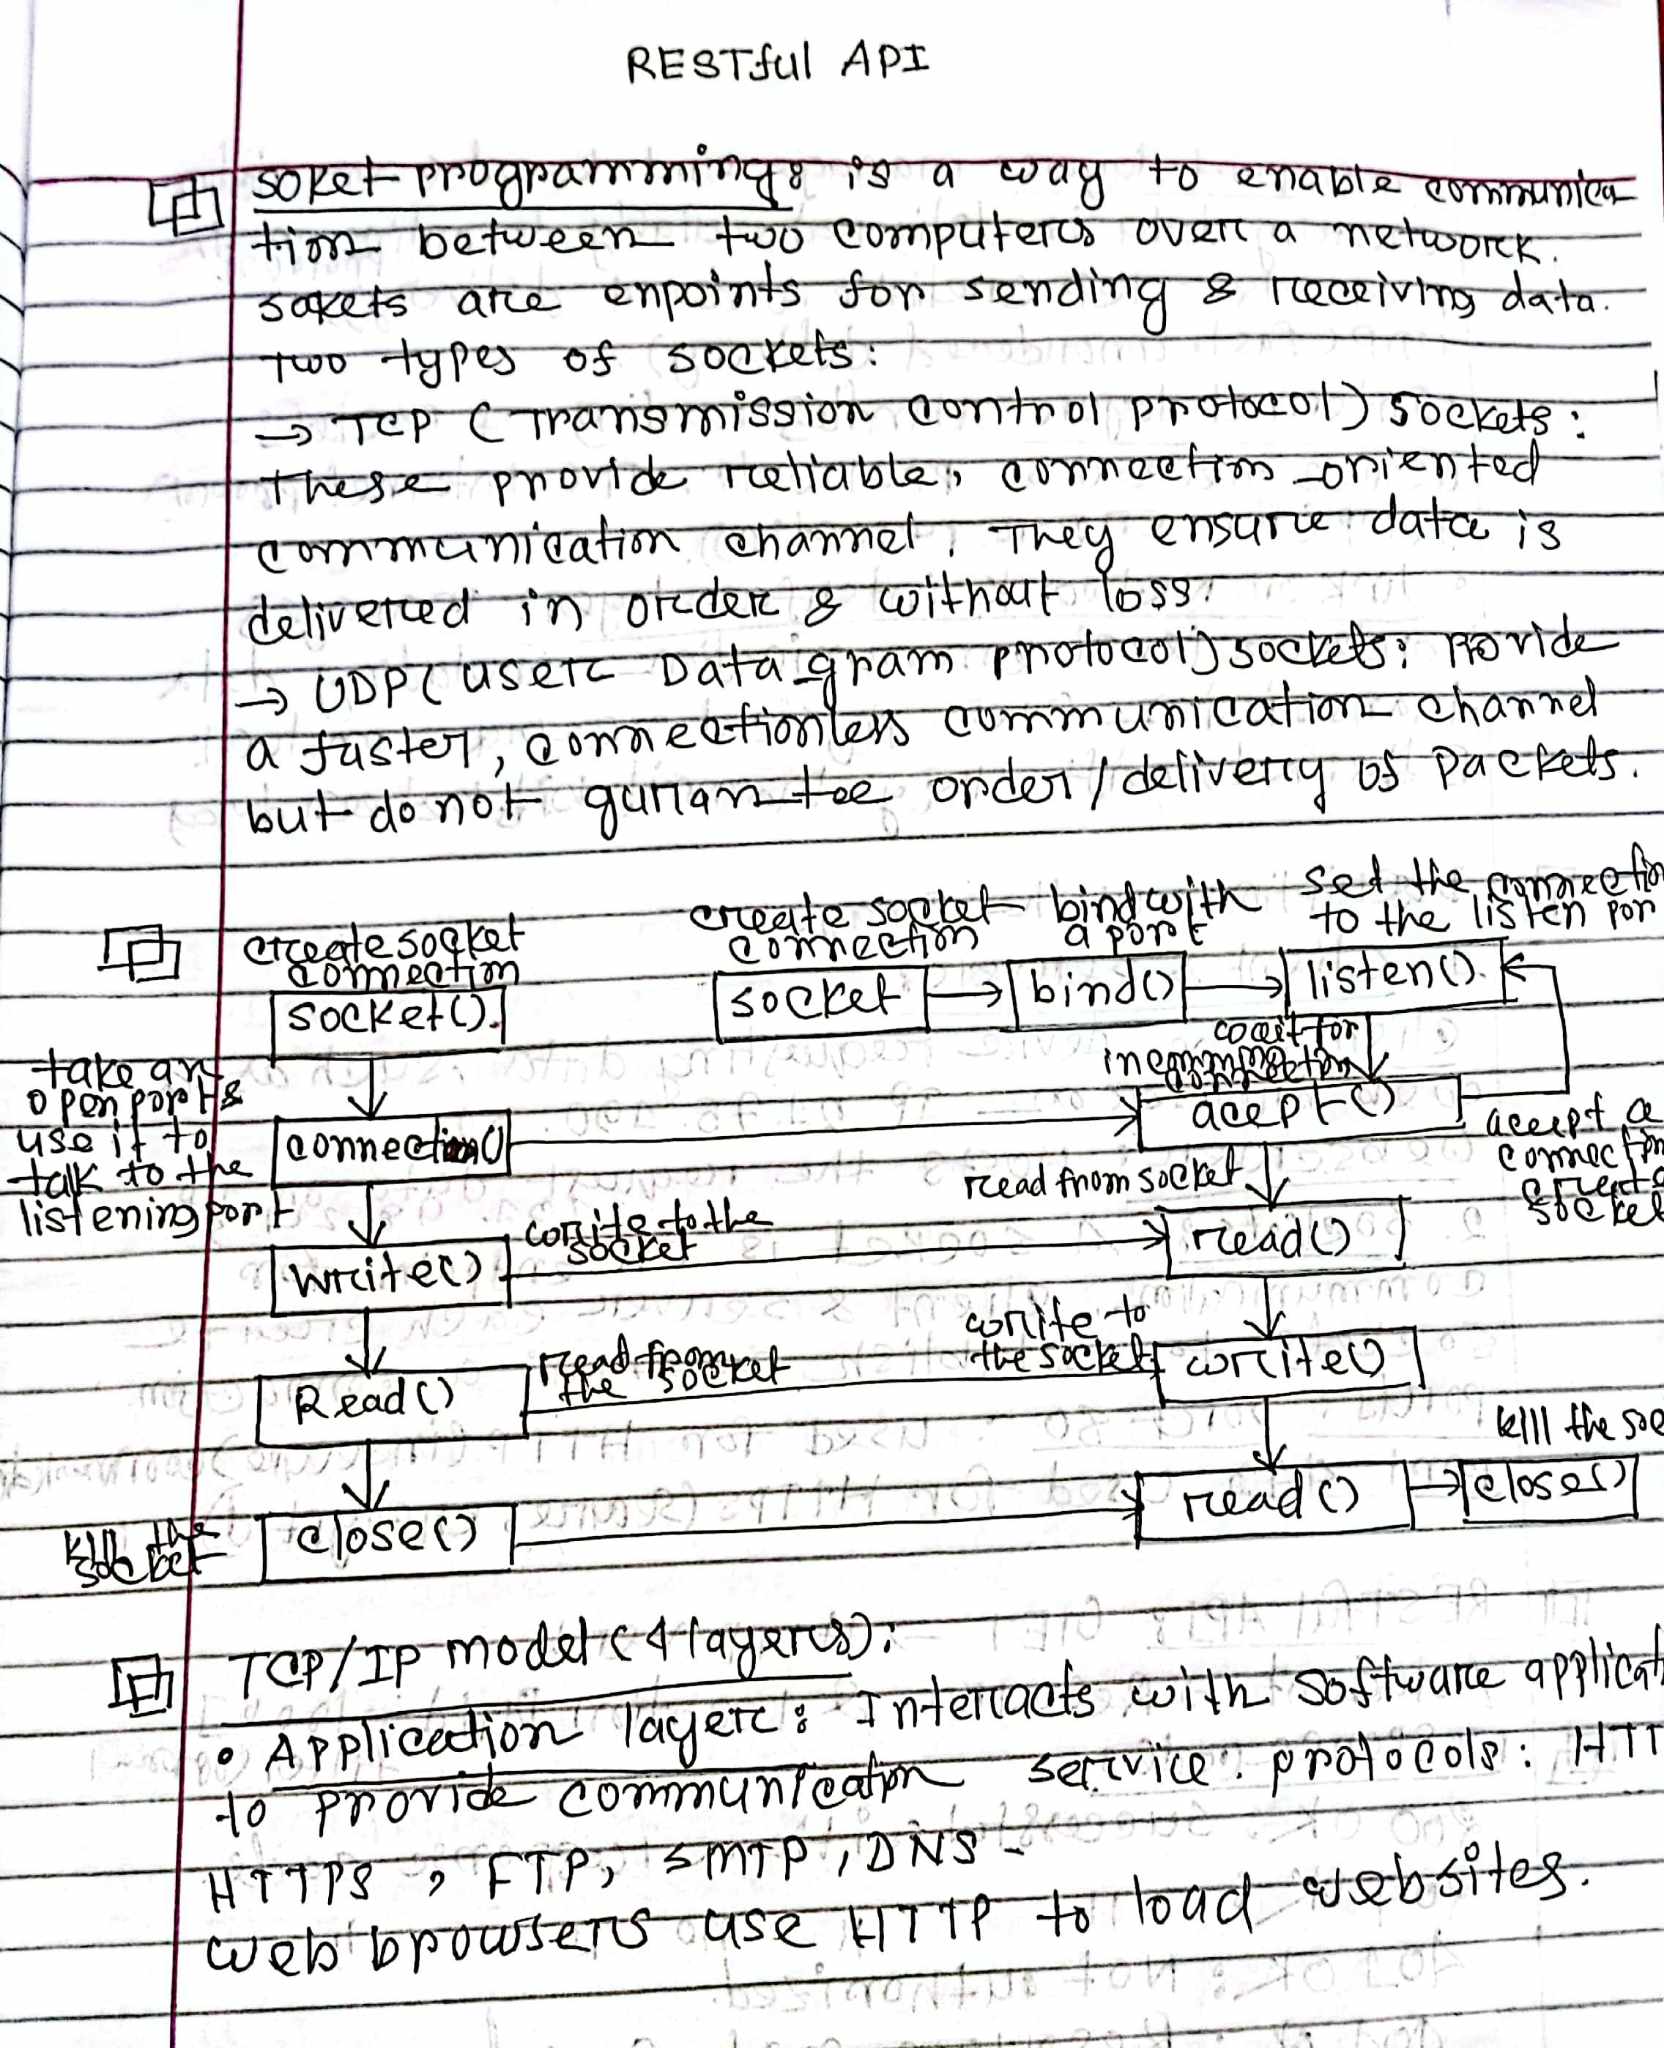 RESTful API
soket programming: is a way to enable communica
tion between two computers over a network.
sokets are enpoints for sending & receiving data.
Two types of sockets:
→ TCP (Transmission control protocol) sockets:
These provide reliable, connection-oriented
communication channel. They ensure data is
delivered in order & without loss.
→ UDP (User Datagram protocol) sockets: Provide
a faster, connectionless communication channel
but do not gurrantee order/delivery of Packets.
create socket
connection
socket()
take an
open port &
use it to
talk to the
listening port
connection()
write to the
socket
write()
read from
the socket
Read()
kill the
socket
close()
create socket
connection
socket
bind with
a port
bind()
set the connection
to the listen por
listen()
wait for
incomming
connection
acept()
accept a
connection
create
socket
read from socket
read()
write to
the socket
write()
read()
kill the soc
close()
TCP/IP model (4 layers):
• Application layer: Interacts with software applicat
to provide communication service. protocols: HTT
HTTPS, FTP, SMTP, DNS -
web browsers use HTTP to load websites.